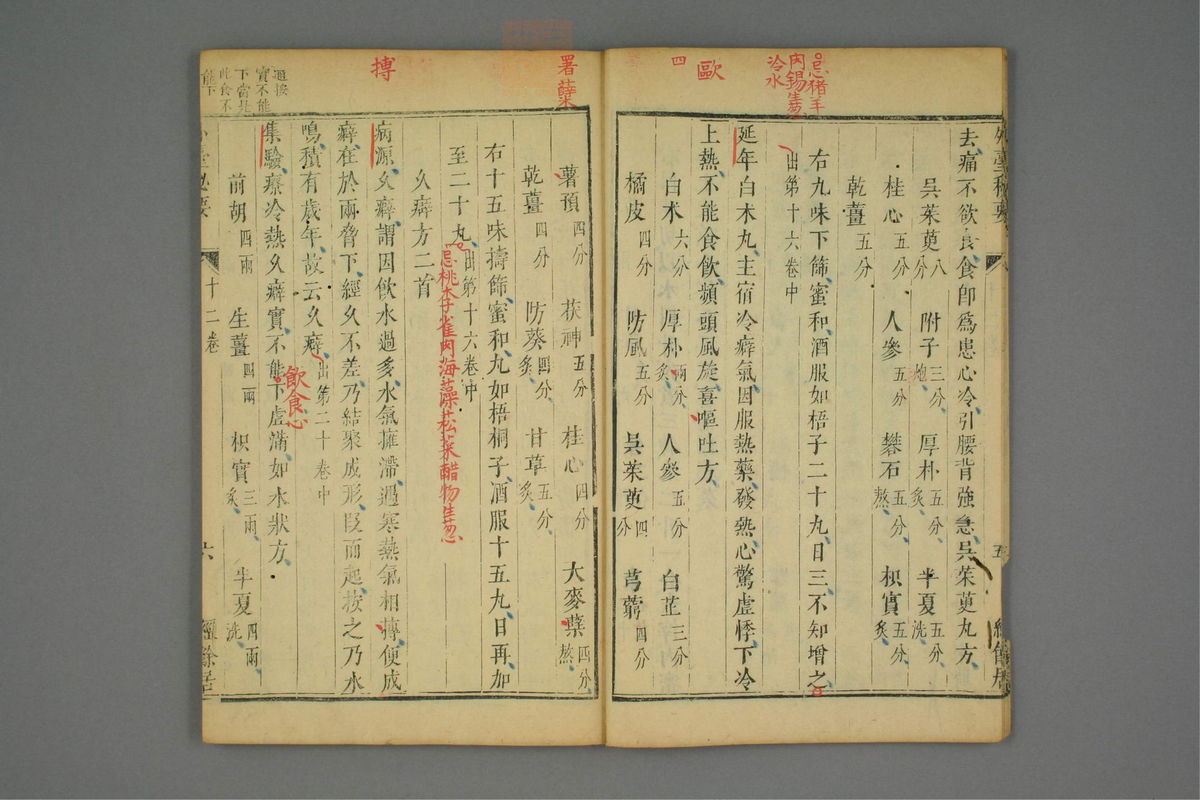 忌猪羊
肉餳生葱
冷水
歐
四
外臺秘要
五
經餘居
去痛不欲食食卽爲患心冷引腰背強急吳茱萸丸方
吳茱萸八分 附子三分炮 厚朴五分炙 半夏五分洗
桂心五分 人參五分 礬石五分熬 枳實五分炙
乾薑五分
右九味下篩蜜和酒服如梧子二十丸日三不知增之
出第十六卷中
延年白术丸主宿冷癖氣因服熱藥發熱心驚虛悸下冷
上熱不能食飲頻頭風旋喜嘔吐方
白术六分 厚朴兩分炙 人參五分 白芷三分
橘皮四分 防風五分 吳茱萸四分 芎藭四分
署蘖
搏
薯預四分 茯神五分 桂心四分 大麥蘖四分熬
乾薑四分 防葵四分炙 甘草五分炙
右十五味擣篩蜜和丸如梧桐子酒服十五丸日再加
至二十丸出第十六卷中
忌桃李雀肉海藻菘菜醋物生葱
久癖方二首
病源久癖謂因飲水過多水氣擁滯遇寒熱氣相摶便成
癖在於兩脅下經久不差乃結聚成形叚而起按之乃水
鳴積有歲年故云久癖出第二十卷中
飲食心
集驗療冷熱久癖實不能下虛滿如水狀方
前胡四兩 生薑四兩 枳實三兩炙 半夏四兩洗
實不能
下當是
此食不
能下
十二卷
六
經餘居